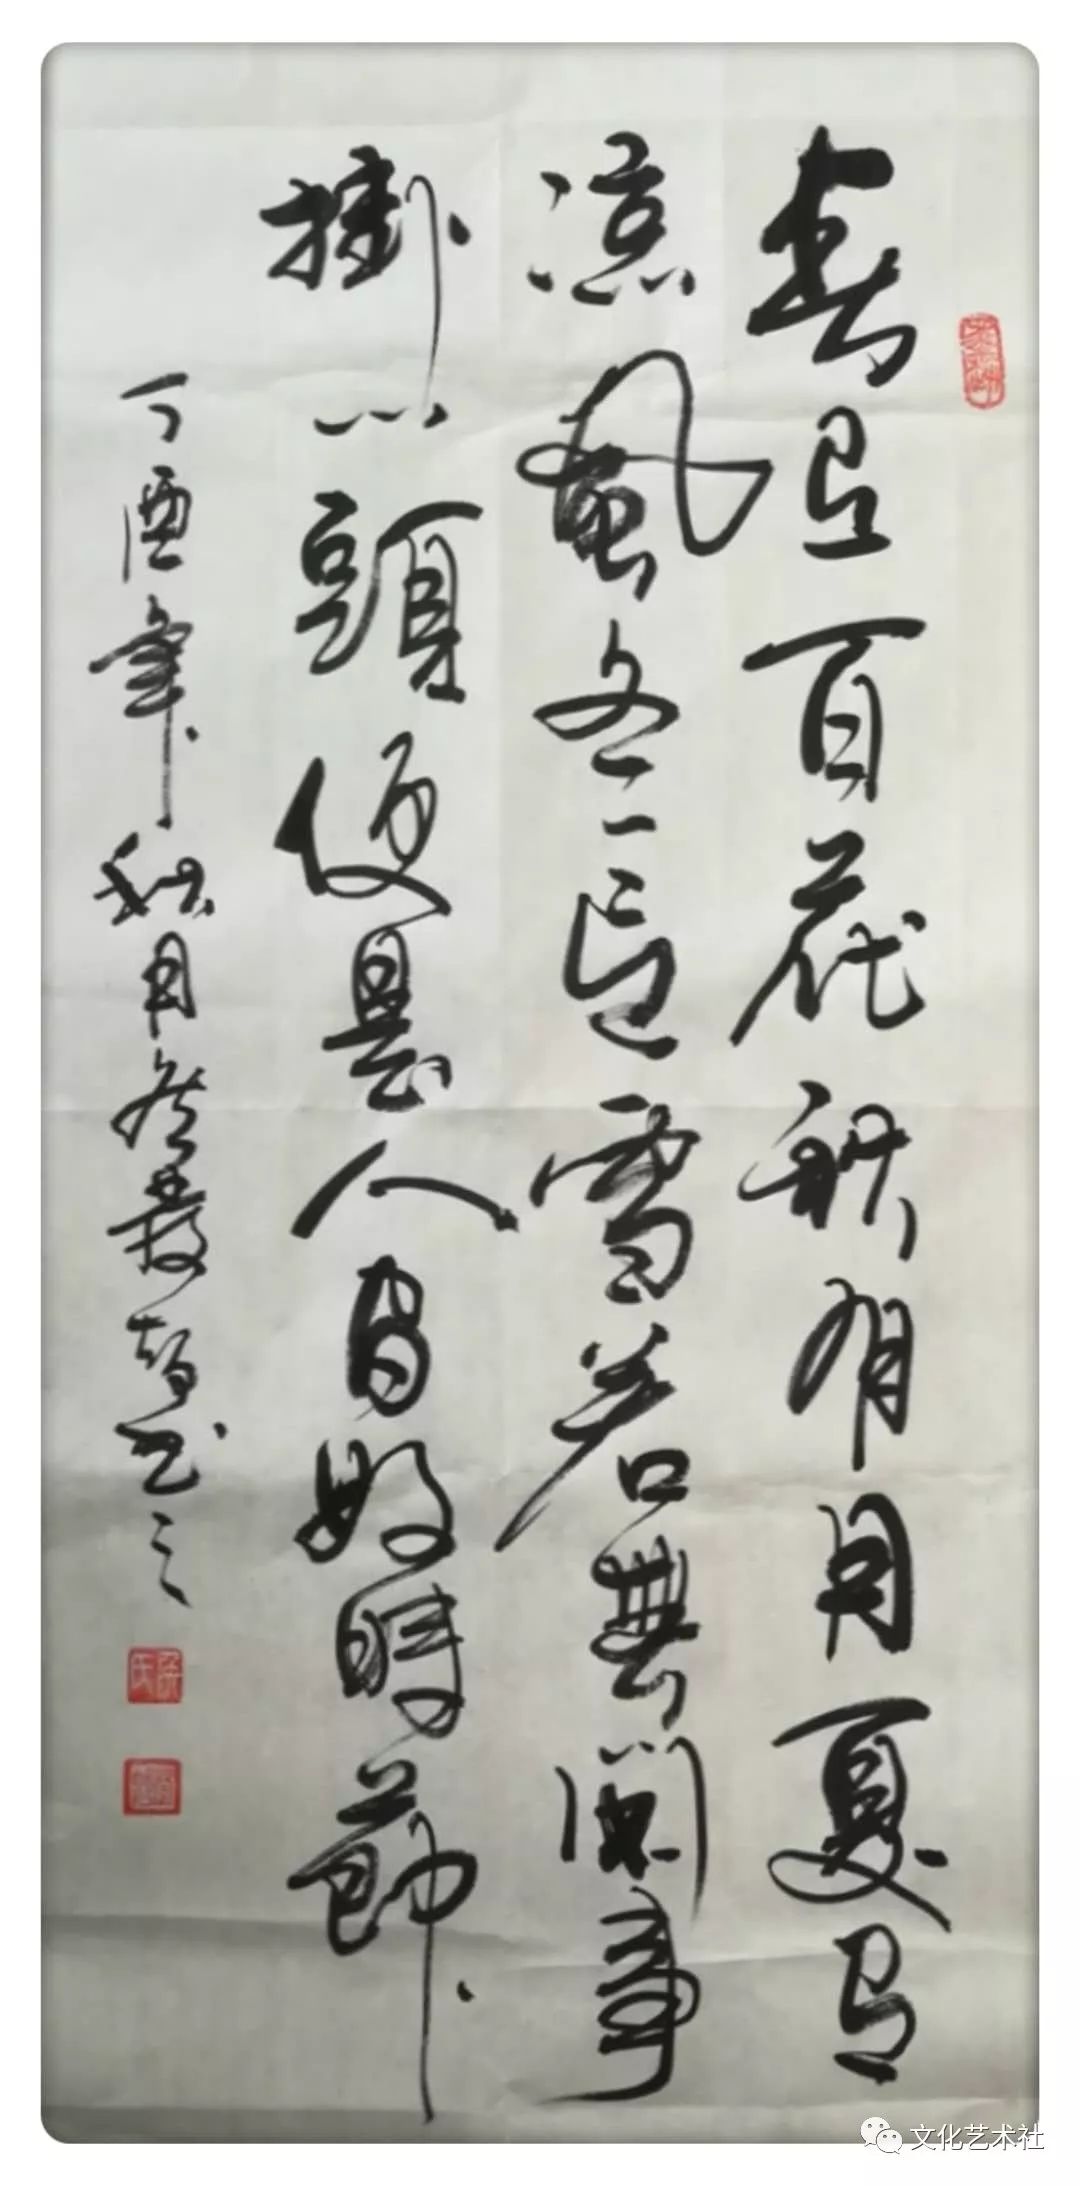 春有百花秋有月夏有
凉風冬有雪若無閑事
掛心頭便是人间好時節
丁酉年秋月
書之
文化艺术社